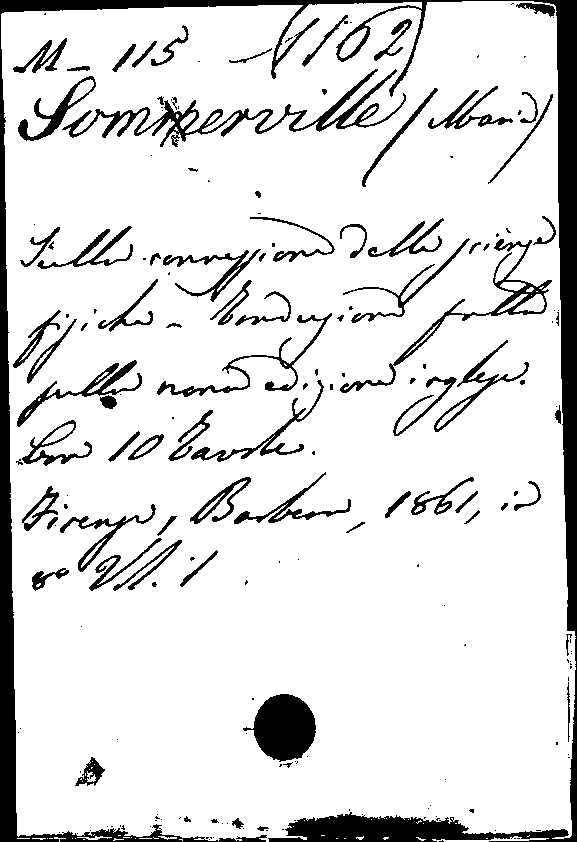 M - 115 (1162)
Sommerville (Maria)
Sulla connessione delle scienze
fisiche - Traduzione fatta
sulla nona edizione inglese.
Con 10 Tavole.
Firenze, Barbera, 1861, in
8° Vol. 1